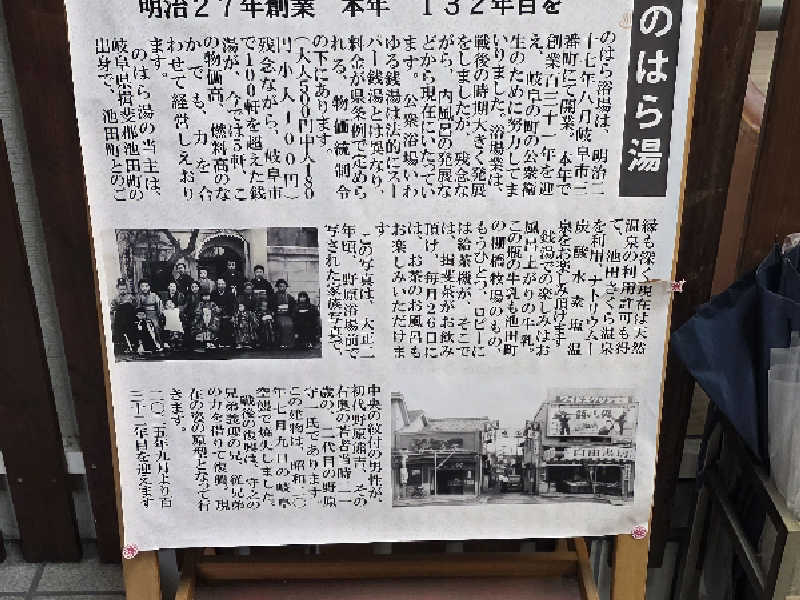 明治27年創業 本年 132年目を
のはら湯
のはら浴場は、明治二
十七年八月岐阜市三
番町にて開業。本年で
創業百三十一年を迎
え、岐阜の町の公衆衛
生のために努力してま
いりました。浴場業は、
戦後の時期大きく発展
をしましたが、残念な
がら、内風呂の発展な
どから現在にいたってい
ます。公衆浴場いわ
ゆる銭湯は法的にスー
パー銭湯とは異なり、
料金が県条例で定めら
れる、物価統制令
の下にあります。
(大人500円中人180
円小人100円)
残念ながら、岐阜市
で100軒を超えた銭
湯が、今では5軒、こ
の物価高、燃料高のな
かでも、力を合
わせて経営しえおり
ます。
のはら湯の当主は、
岐阜県揖斐郡池田町の
出身で、池田町とのご
縁も深く現在は天然
温泉の利用許可も得
て、池田さくら温泉
を利用、ナトリウムー
炭酸水素塩温
泉をお楽しみ頂けます
銭湯での楽しみはお
風呂上がりの牛乳。
この瓶の牛乳も池田町
の棚橋牧場のもの、
もうひとつ、ロビーに
は給茶機が、そこで
は揖斐茶がお飲み
頂け、毎月26日に
は、お茶のお風呂も
お楽しみいただけま
す
この写真は、大正一
年頃、野原浴場前で
写された家族写真で、
中央の紋付の男性が、
初代野原師吉、その
右奥の若者当時二一
歳の、二代目の野原
守一氏であります。
この建物は、昭和二〇
年七月九日の岐阜
空襲で焼失しました。
戦後の復興は、守之の
兄弟義徳の兄、従兄弟
の力を借りて復興、現
在の姿の原型となって行
きます。
二〇二五年九月より百
三十二年目を迎えます